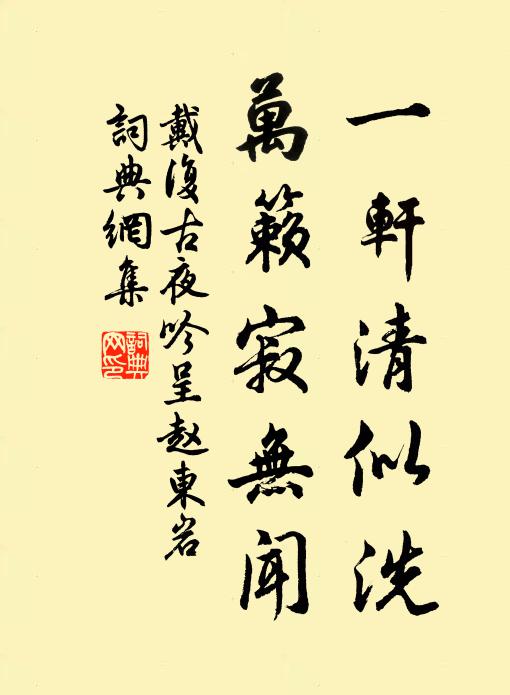 一軒清似洗
萬籟寂無聞
戴復古夜吟呈趙東岩
詞典網集
詞典網印